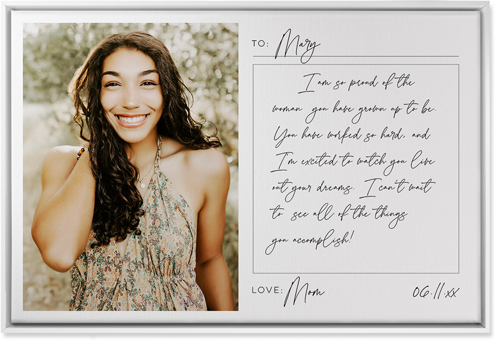 TO: Mary
I am so proud of the
woman you have grown up to be.
You have worked so hard, and
I'm excited to watch you live
out your dreams. I can't wait
to see all of the things
you accomplish!
LOVE: Mom 06.11.xx